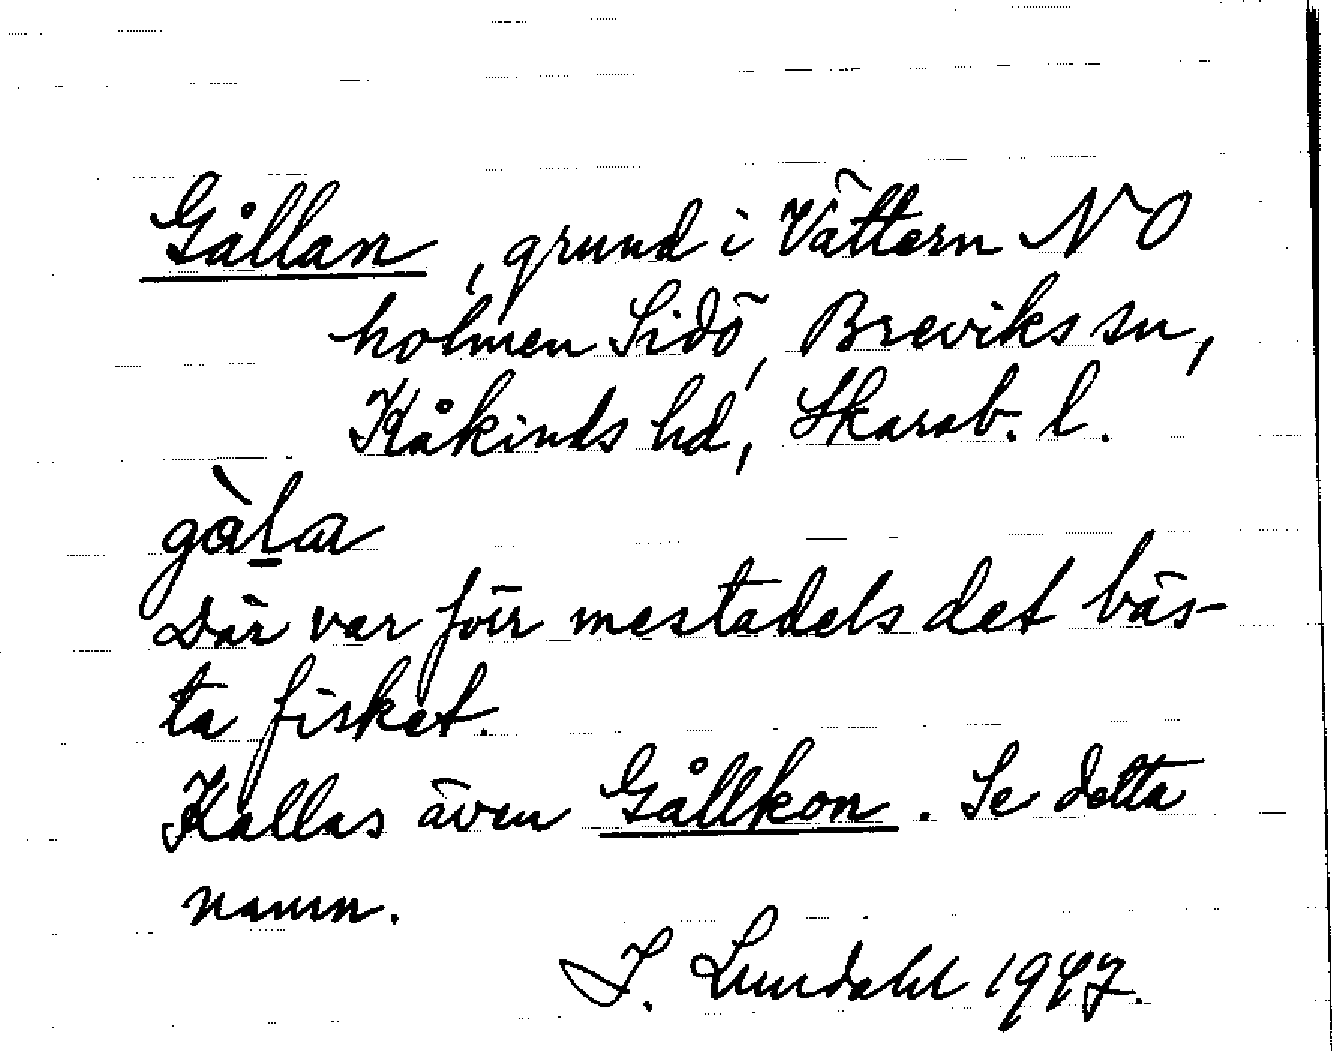 Gållan, grund i Vättern NO
holmen Sidö, Breviks sn,
Kåkinds hd, Skarab. l.
gàla
Där var förr mestadels det bäs-
ta fisket.
Kallas även Gållkon. Se detta
namn.
I. Lundahl 1947.